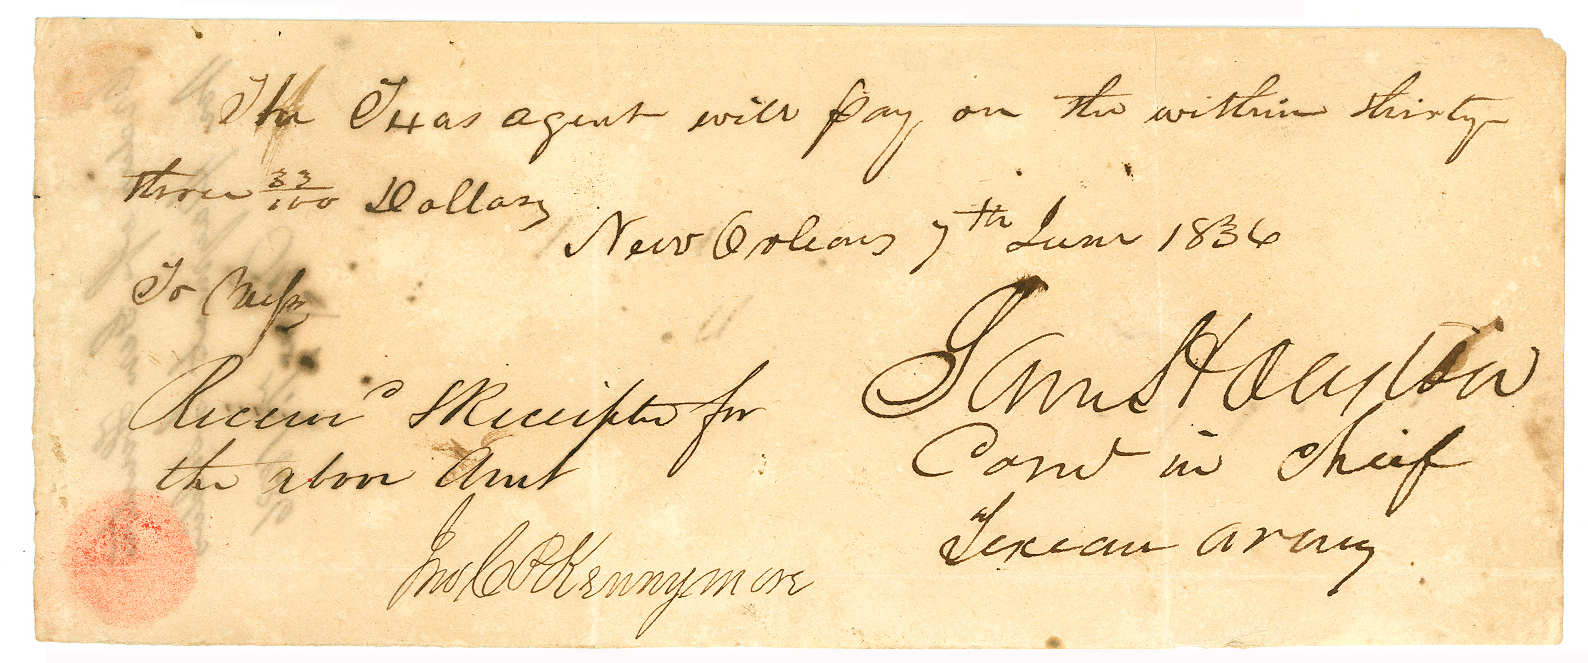 The Texas agent will pay on the within thirty
three 33/100 Dollars
New Orleans 7th June 1836
To Mess
Sam Houston
Comd in chief
Texian army
Receivd & Receipted for
the above Amt
Jno C P Kennymore